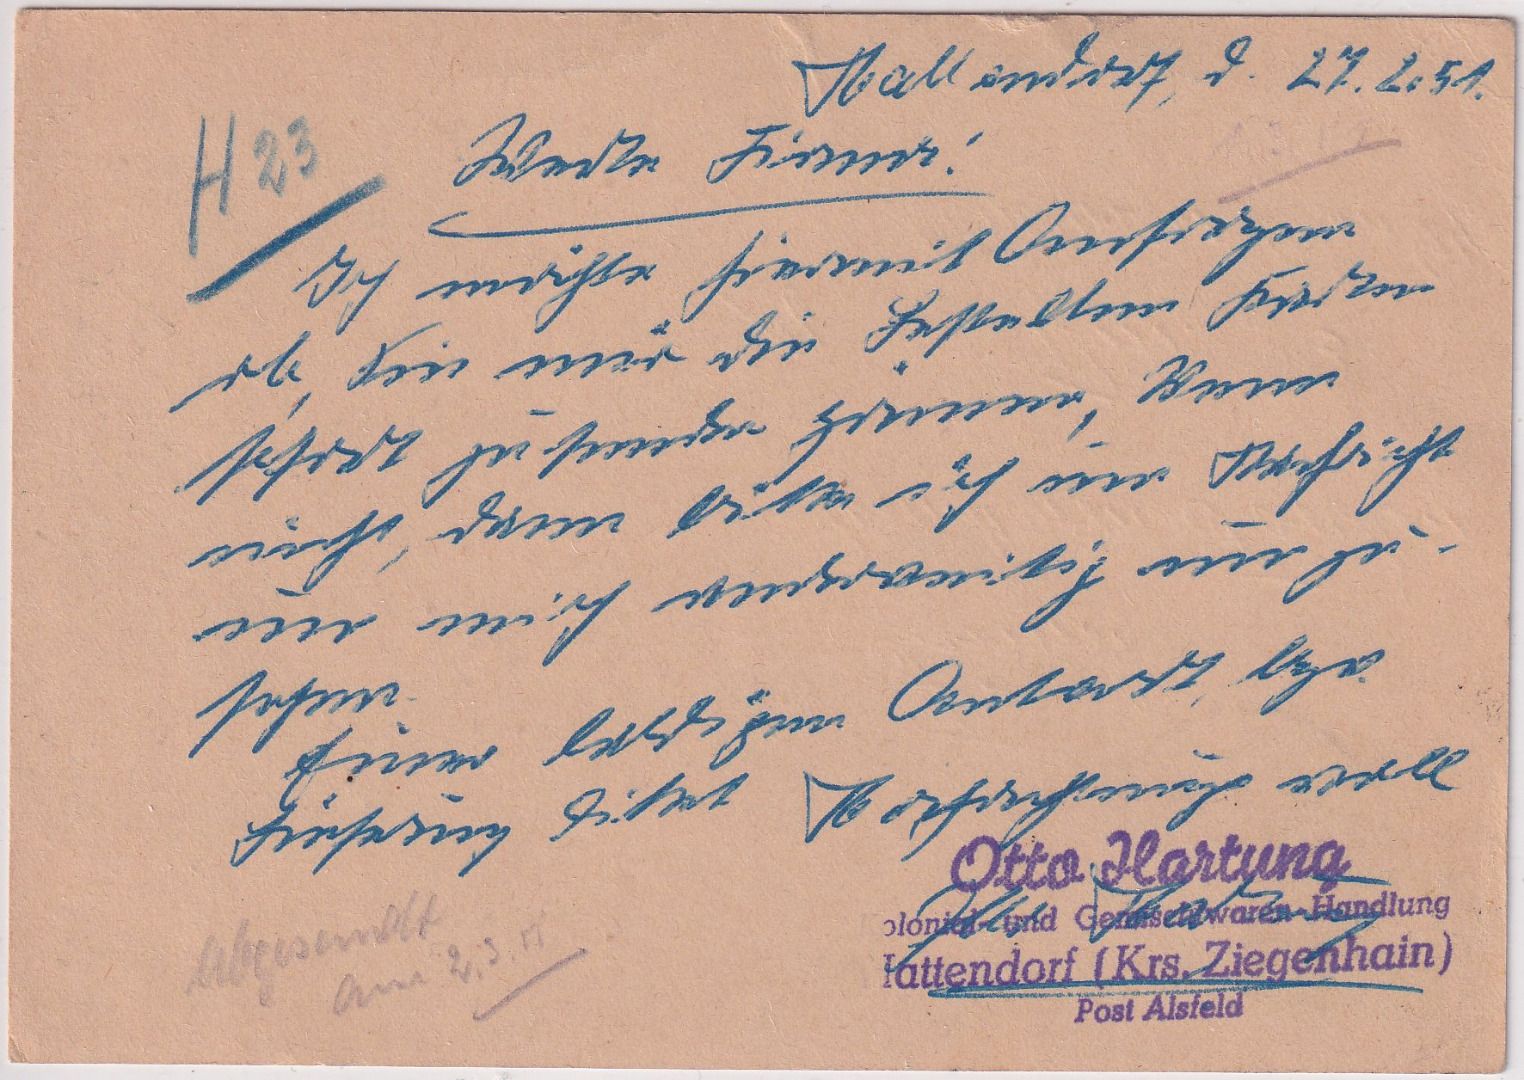 Hattendorf, d. 27.2.51.
H 23
Werte Firma!
Ich möchte hiermit Anfragen
ob, Sie mir die bestellten
sofort zu senden können, Wenn
nicht, dann bitte ich um Nachricht
um mich anderweitig um zu-
sehen.
Einer baldigen Antwort, bzw.
Lieferung
Otto Hartung
olonial- und Gemischtwaren-Handlung
Hattendorf (Krs. Ziegenhain)
Post Alsfeld
Abgesandt
am 2.3.51